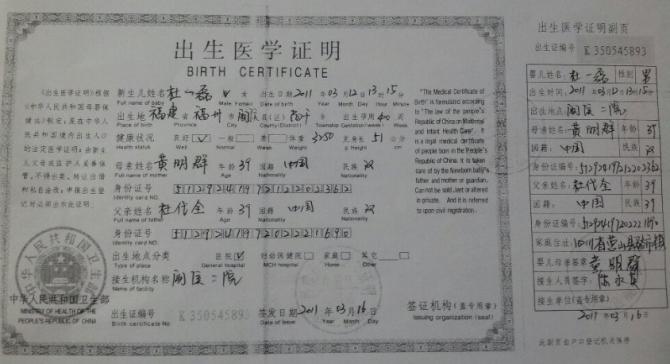 出生医学证明
BIRTH CERTIFICATE
《出生医学证明》根据
《中华人民共和国母婴保
健法》制定，是在中华人
民共和国境内出生人口
的法定医学证明，由新生
儿父母或监护人妥善保
管，不得出卖、转让出借
和私自涂改，并保出生登
记时必须出示此证明。
新生儿姓名 杜一磊
Full name of baby
Male Female
出生日期 2011 年 03 月 12 日 13 时 15 分
Date of birth Year Month Day Hour Minute
出生地 福建 省 福州 市
Place of birth Province City
County (District) Township
出生孕周 40 周
Gestation week
健康状况 良好 一般 差
Health status Well
体重 3250 克
Weight
身长 51 公分
母亲姓名 黄明群 年龄 39 国籍 中国 民族 汉
Full name of mother Age Nationality Nationality
身份证号
Identity card NO.
父亲姓名 杜代全 年龄 39 国籍 中国 民族 汉
Full name of father Age Nationality Nationality
身份证号
Identity card NO.
出生地点分类 医院 妇幼保健院 家庭 其它
Type of place General hospital MCH hospital Home Other
接生机构名称
Name of facility
出生证编号 K 350545893
Birth certificate No
签发日期 2011 年 03 月 16 日
Date of issue Year Month Day
签证机构（盖专用章）
Issuing organization (seal)
中华人民共和国卫生部
MINISTRY OF HEALTH OF THE
PEOPLE'S REPUBLIC OF CHINA
"The Medical Certificate of
Birth" is formulated according
to "The law of the people's
Republic of China on Maternal
and Infant Health Care". It
is a legal medical certificate
of people born in the People's
Republic of China. It is taken
care of by the Newborn baby's
father and mother or guardian.
Can not be sold, lent or altered
in private. And it is referred
to upon civil registration.
出生医学证明副页
出生证编号 K 350545893
婴儿姓名: 杜一磊 性别 男
出生时间: 2011 年 03 月 12 日 13 时 15 分
出生地点
母亲姓名 黄明群 年龄 39
国籍: 中国 民族 汉
身份证编号:
父亲姓名: 杜代全 年龄 39
国籍: 中国 民族 汉
身份证编号:
家庭住址:
婴儿母亲签章 黄明群
接生人员签字
接生单位(盖专用章)
2011 年 03 月 16 日
此副页由户口登记机关保存